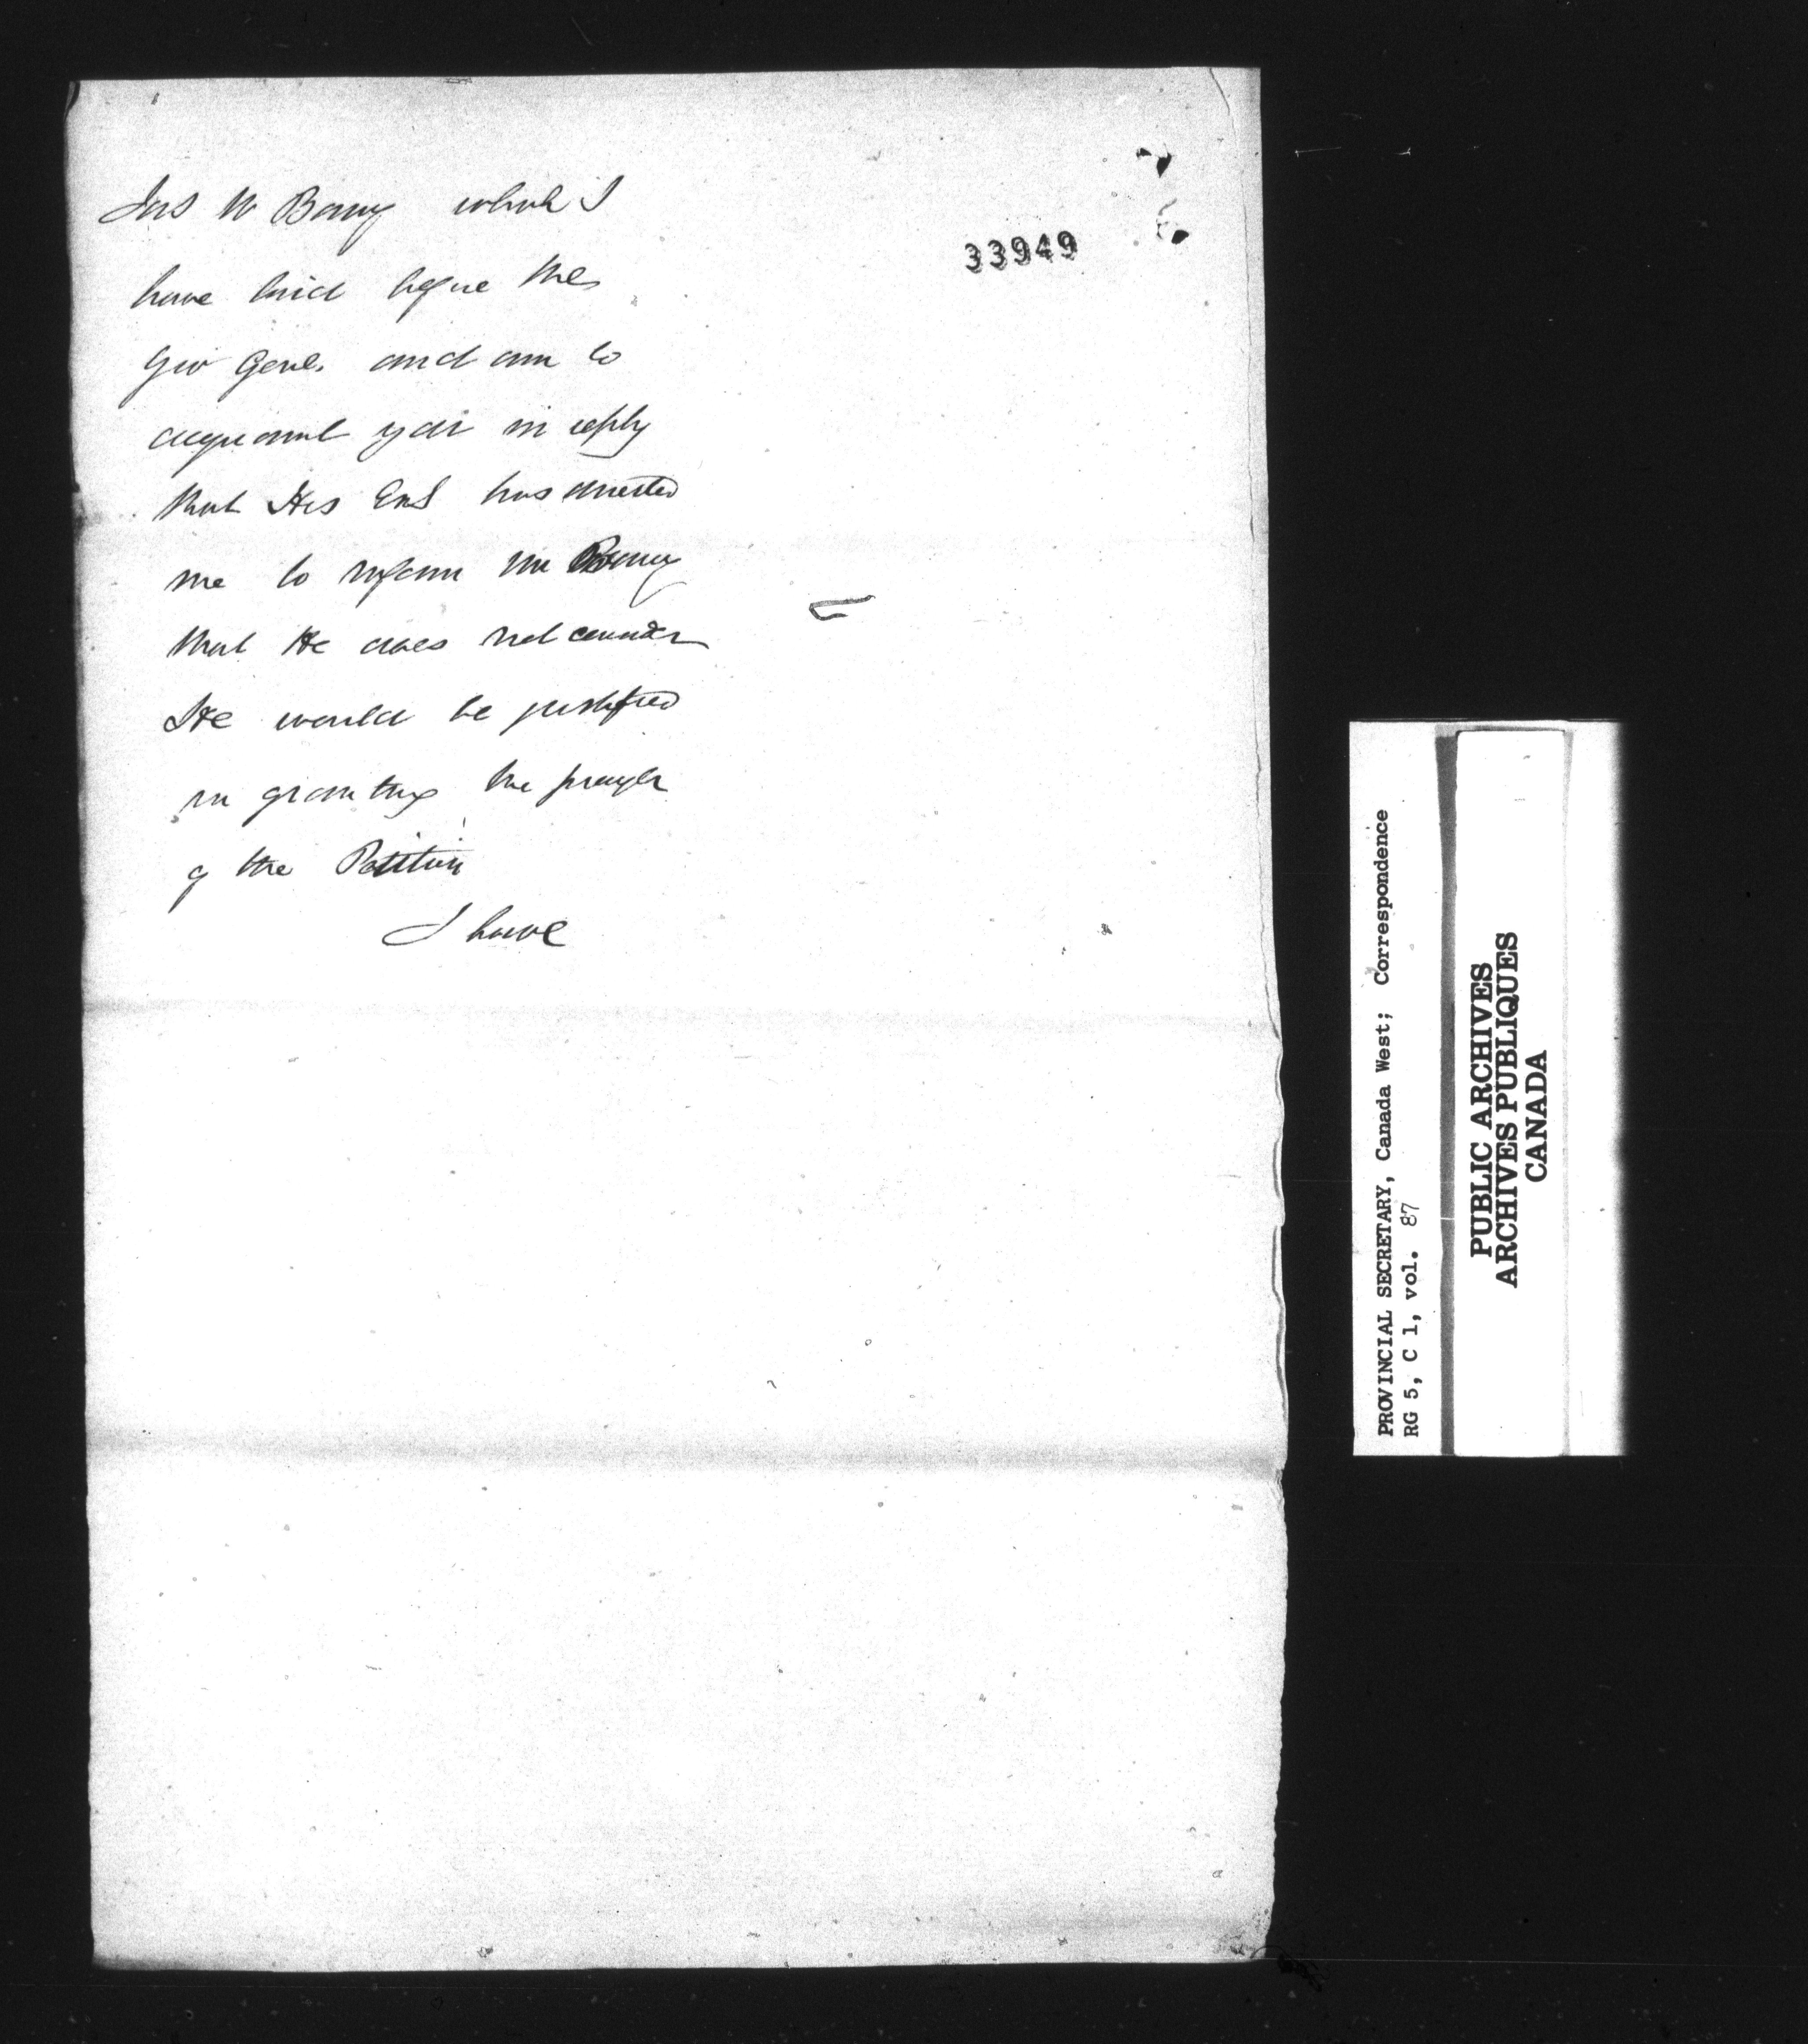 Jas W Barry which I
33949
have laid before the
Gov Genl. and am to
acquaint you in reply
that His Exc has directed
me to inform Mr Barry
that He does not consider
He would be justified
in granting the prayer
of the Petition
I have
PROVINCIAL SECRETARY, Canada West; Correspondence
RG 5, C 1, vol. 87
PUBLIC ARCHIVES
ARCHIVES PUBLIQUES
CANADA